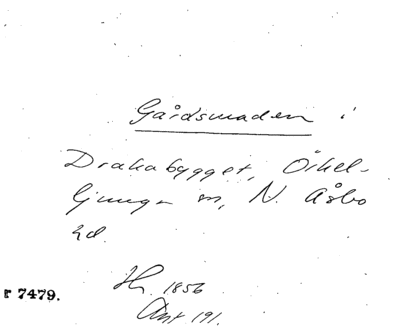 Gårdsmaden i
Drakabygget, Örkel-
ljunga sn, N. Åsbo
hd.
r 7479.
1856
191.